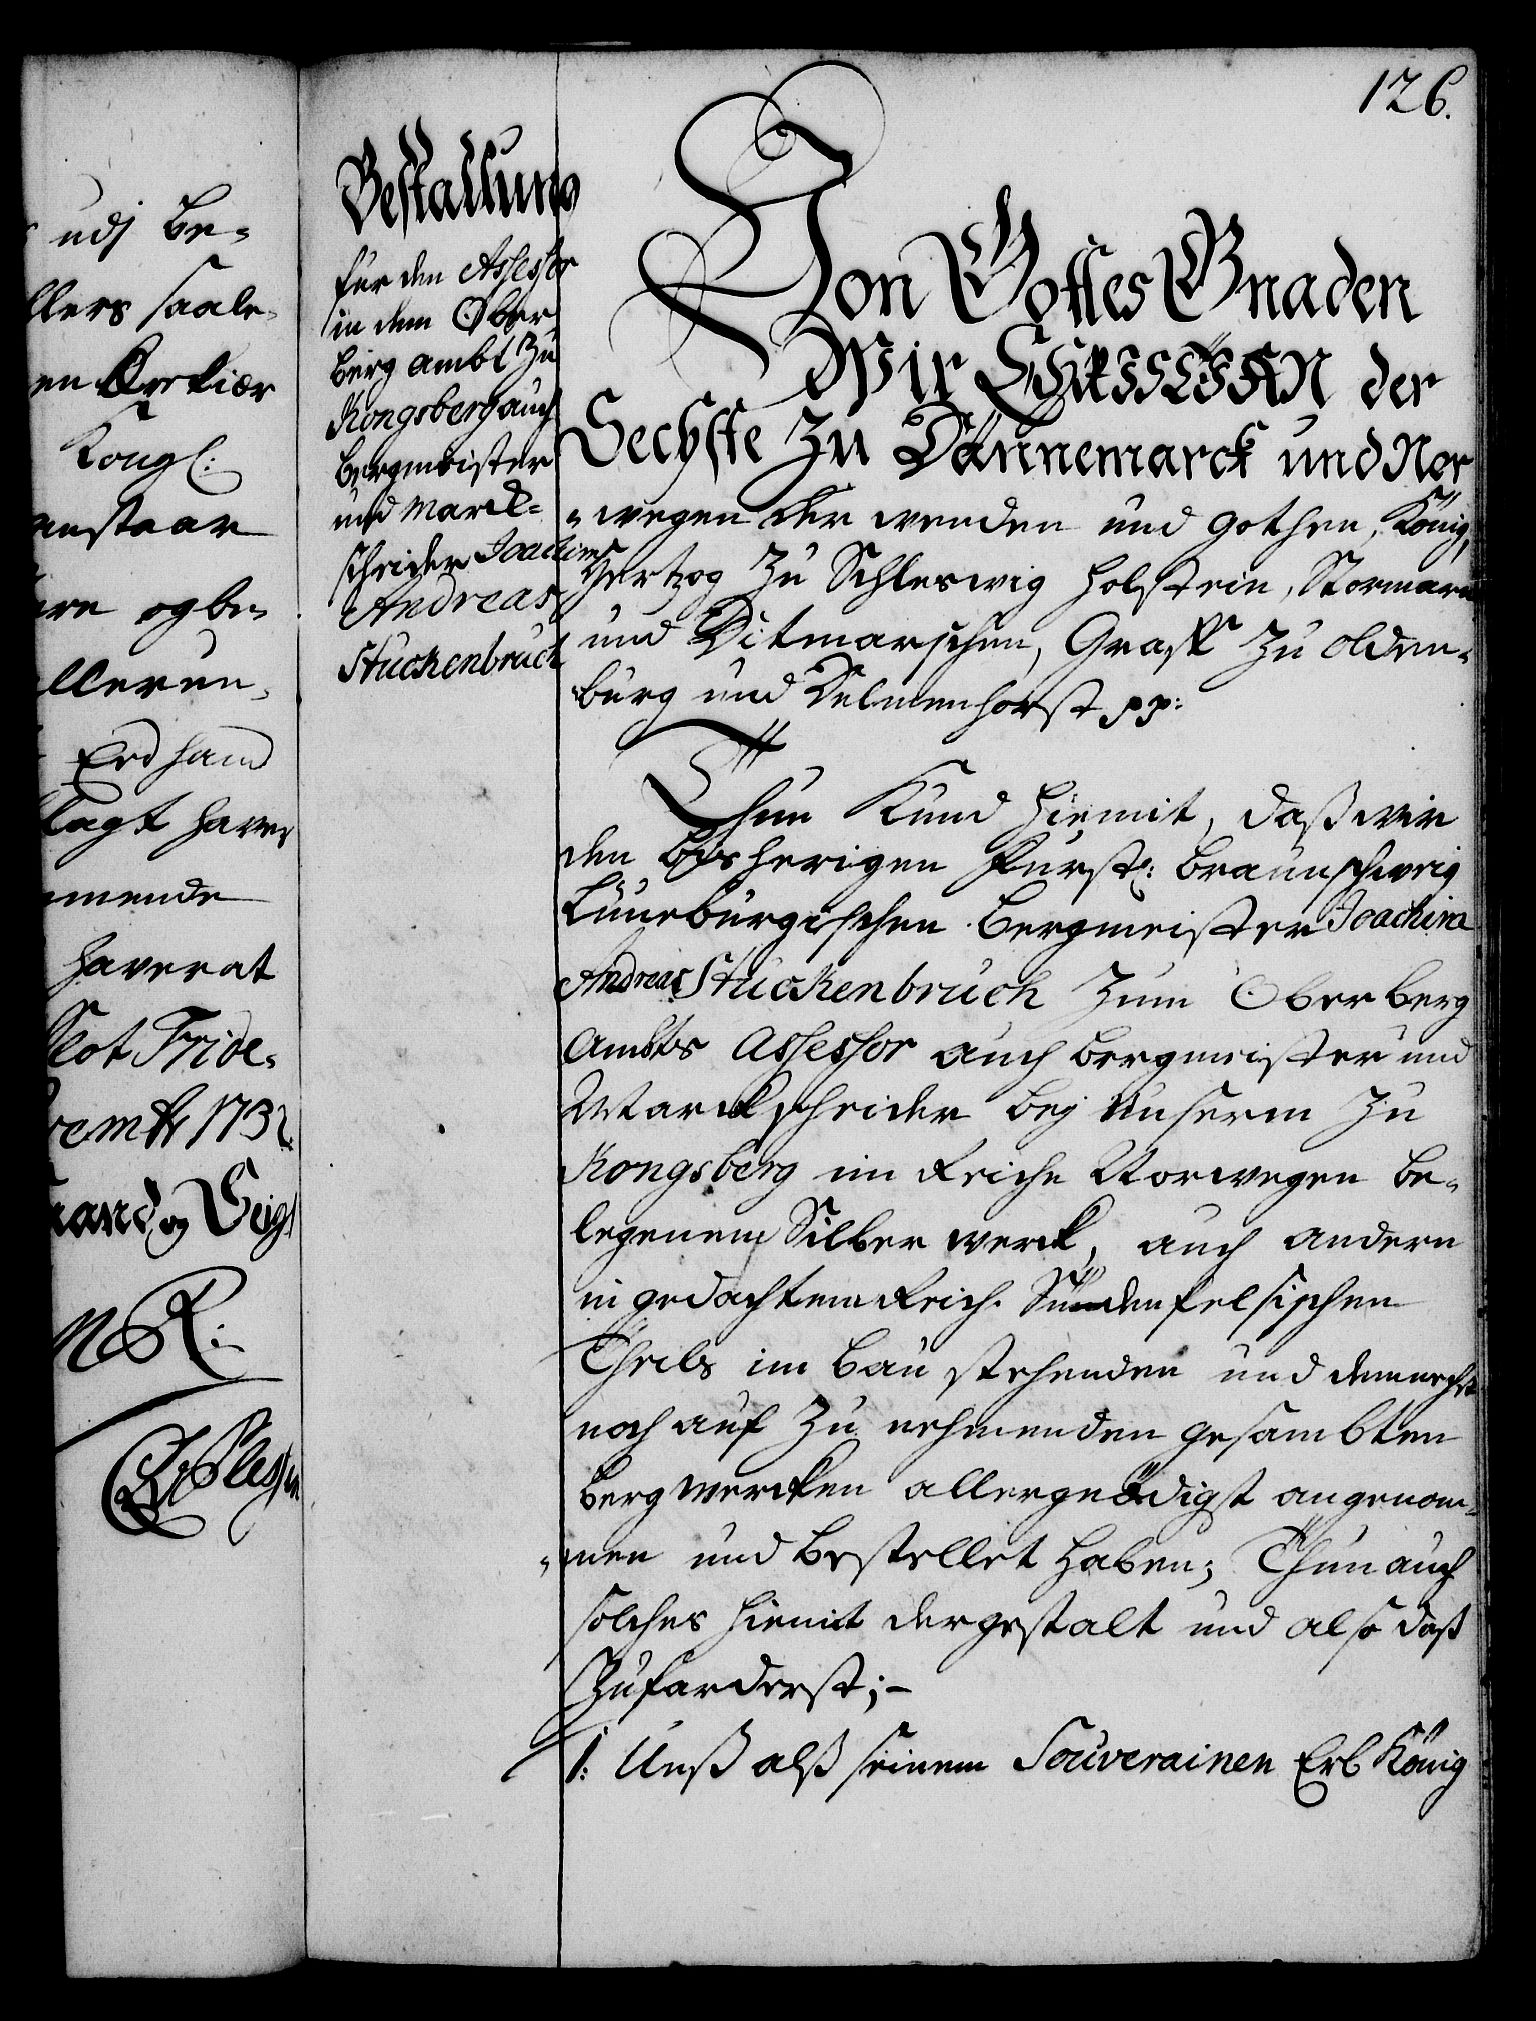 126.
udj be-
llers saale-
en Qvrkiær
Kongl:
anstaar
re ogbe-
lleren-
Erd haand
lagt haver
mende
haver at
Slot Fride-
cembr 1732.
haand og Seigl
R:
CAvPlessen
Bestallung
für den Assessor
in dem Ober
berg ambt zu
Kongsberg auch
Bergmeister
und Marck-
scheider Joachim
Andreas
Stuckenbruch
Von Gottes Gnaden
Wir CHRISTIAN der
Sechste zu Dännemarck und Nor
-wegen der wenden und gothen, König,
Hertzog zu Schleswig Holstein, Stormarn
und Ditmarschen, Graff zu olden-
burg und Delmenhorst pp:
Thun Kund hiemit, daß wir
den bisherigen Fürstl: Braunschweig
Lüneburgischen Bergmeister Joachim
Andreas Stuckenbruch zum Ober berg
Ambts Assessor auch bergmeister und
Marckscheider bej Unserm zu
Kongsberg im Reiche Norwegen be-
legenem Silber werck, auch andern
in gedachtem Reich Südenfelsischen
Theils im bau stehenden und demnechst
noch auf zu nehmenden gesambten
bergwercken allergnädigst angenom-
-men und bestellet haben; Thun auch
solches hiemit dergestalt und also daß
Zuforderst;-
1: Unß alß seinem Souverainen Erb König